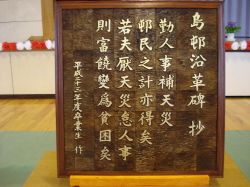 烏邨沿革碑 抄
勤人事補天災
邨民之計亦得矣
若夫厭天災怠人事
則富饒變爲貧困矣
平成二十三年度卒業生 作